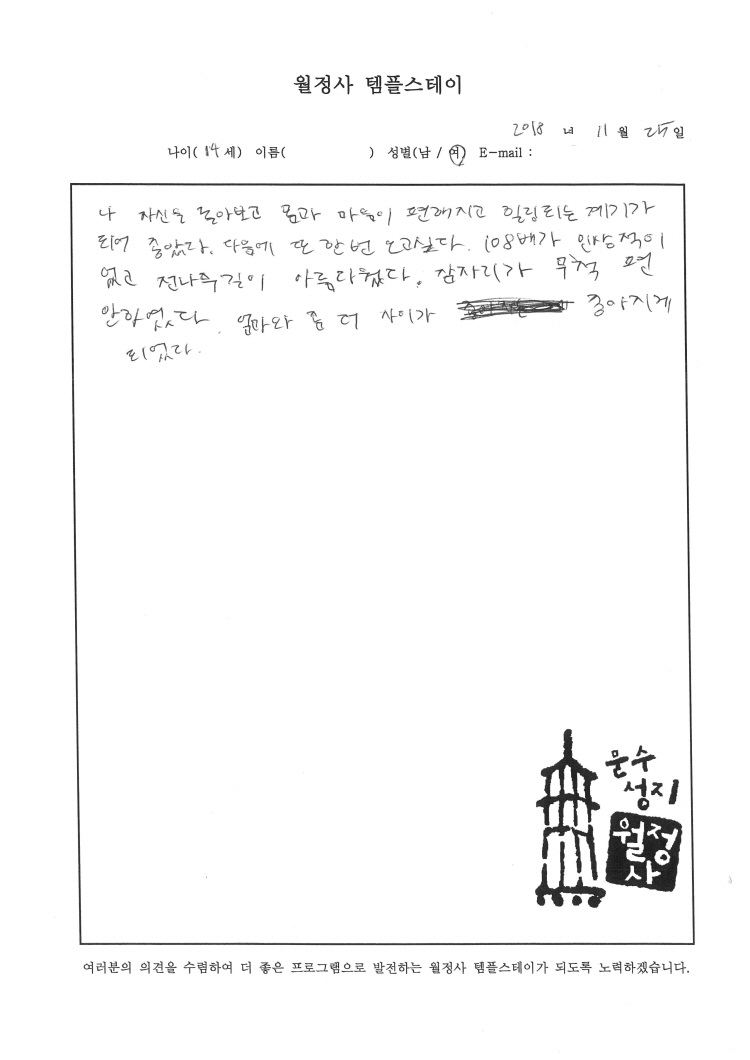 월정사 템플스테이
2018 년 11월 25일
나이( 14 세) 이름( ) 성별(남 / 여) E-mail :
나 자신을 돌아보고 몸과 마음이 편해지고 힐링되는 계기가
되어 좋았다. 다음에 또 한번 오고싶다. 108배가 인상적이
었고 전나무길이 아름다웠다. 잠자리가 무척 편
안하였다. 엄마와 좀 더 사이가 좋아지게
되었다.
문수
성지
월정
사
여러분의 의견을 수렴하여 더 좋은 프로그램으로 발전하는 월정사 템플스테이가 되도록 노력하겠습니다.